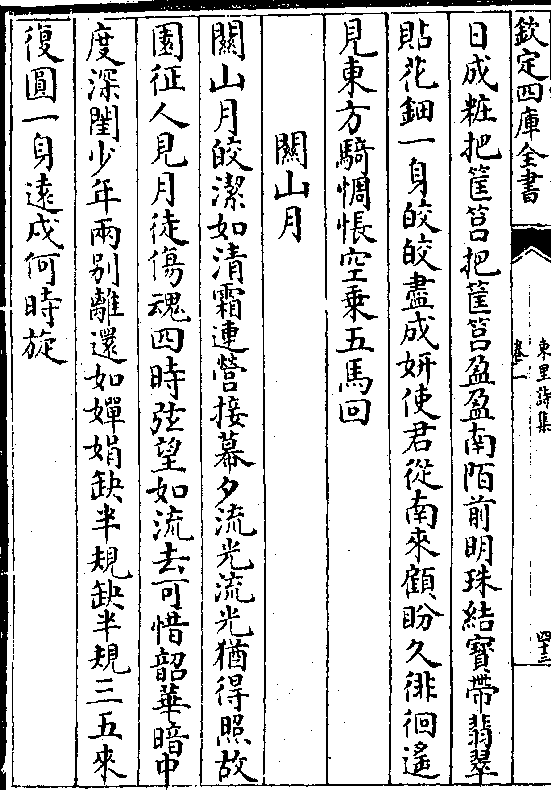 欽定四庫全書
東里詩集
卷一
四十三
日成粧把筐筥把筐筥盈盈南陌前明珠結寳帶翡翠
貼花鈿一身皎皎盡成妍使君從南來顧盼久徘徊遙
見東方騎惆悵空乗五馬回
關山月
關山月皎潔如清霜連營接幕夕流光流光猶得照故
園征人見月徒傷魂四時弦望如流去可惜韶華暗中
度深閨少年兩别離還如嬋娟缺半規缺半規三五來
復圓一身遠戍何時旋